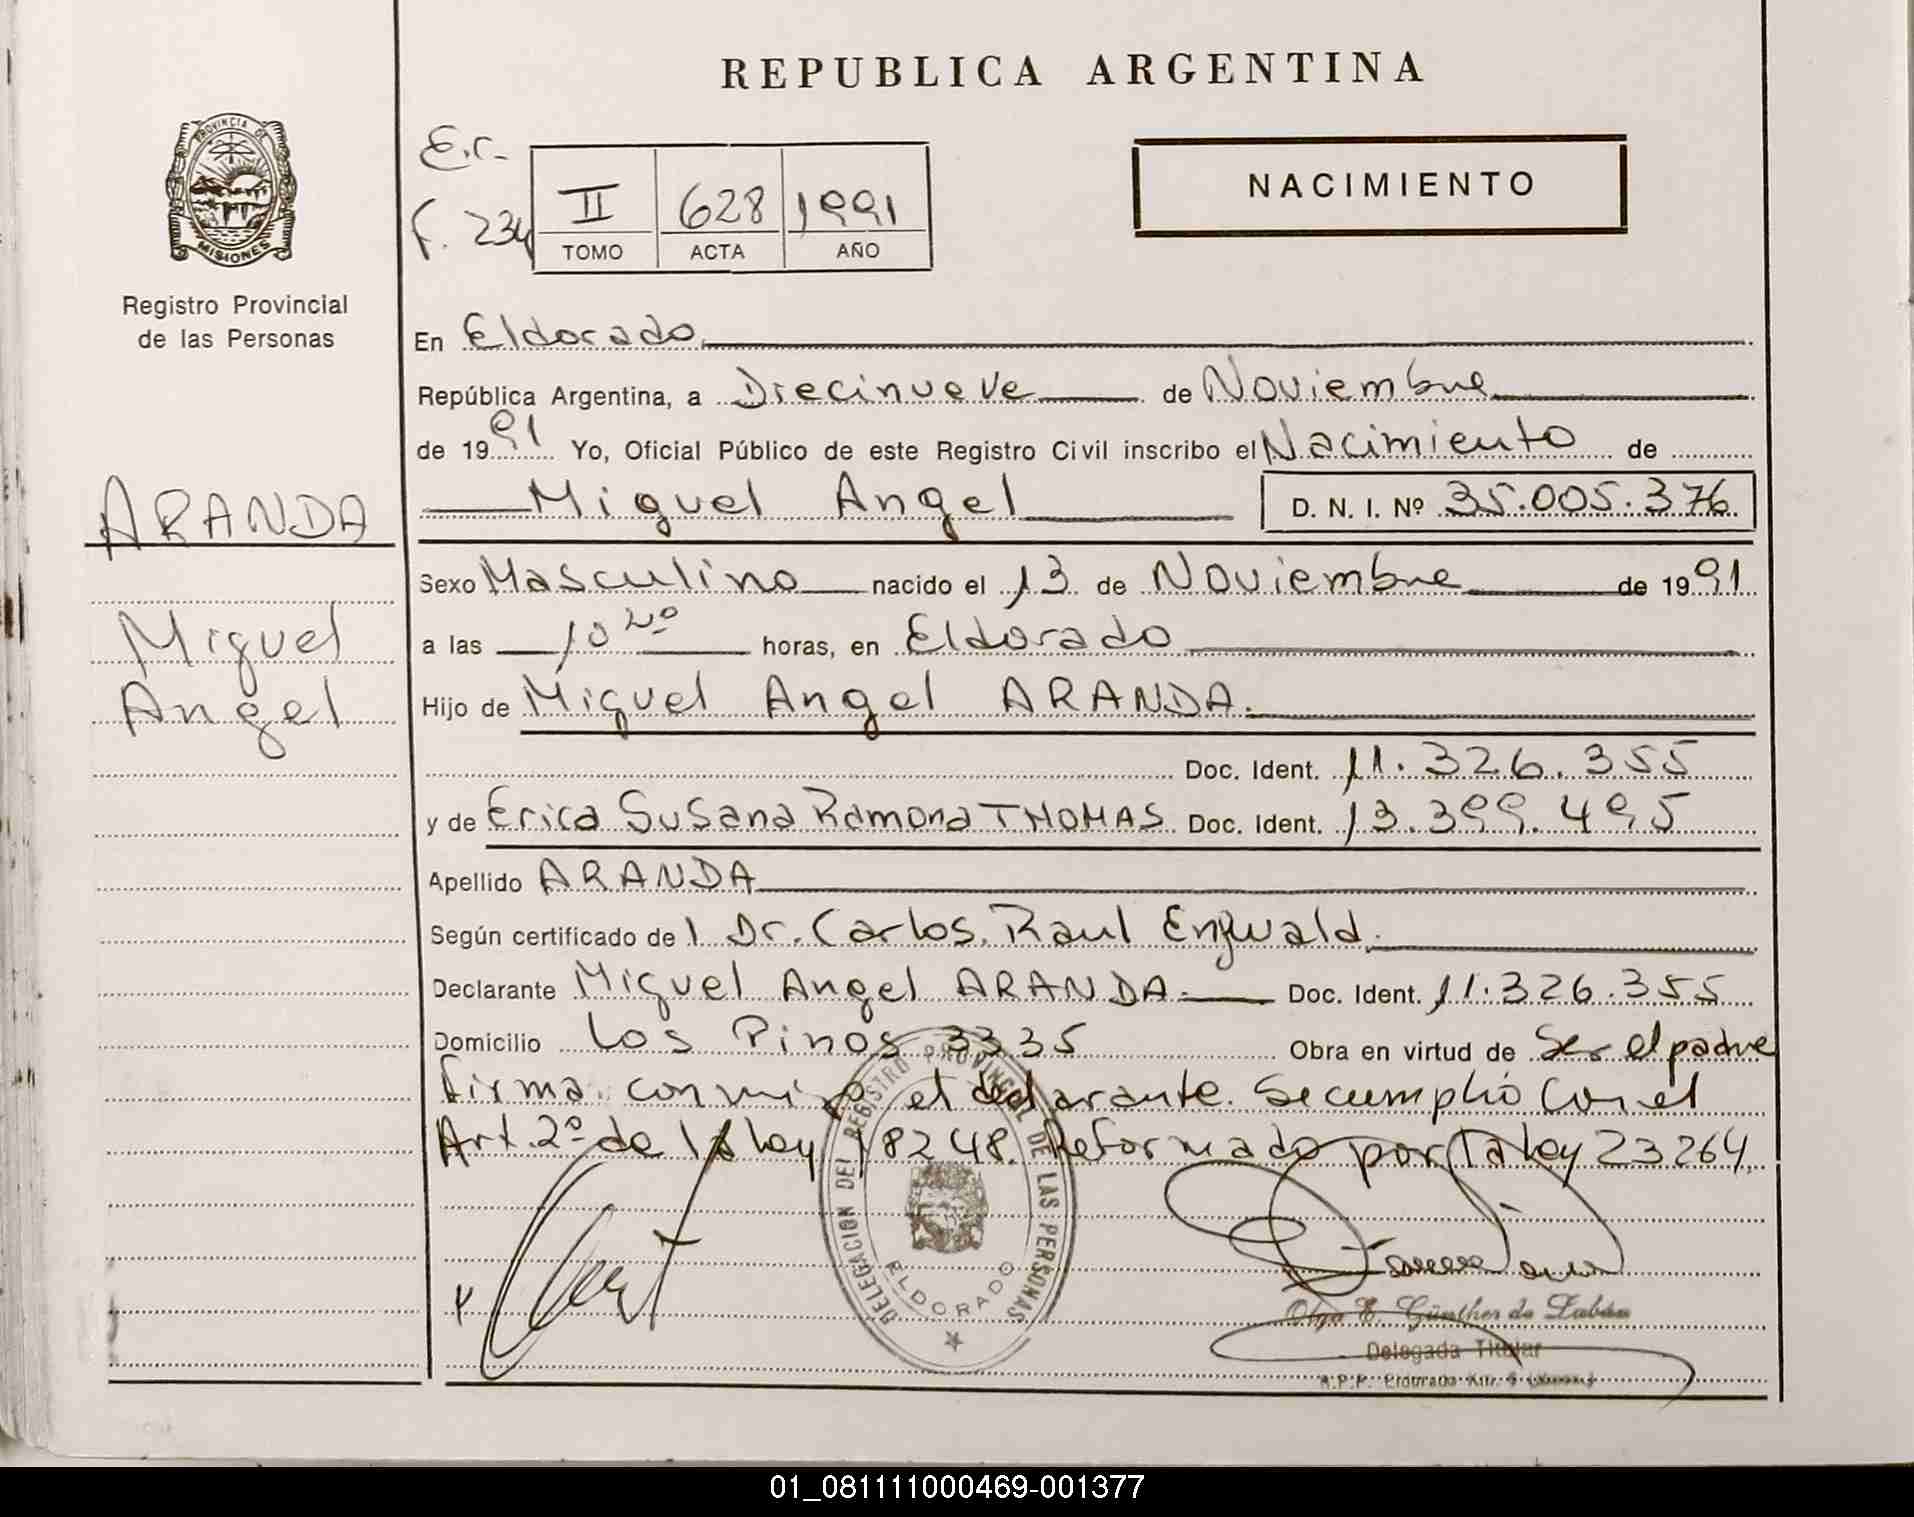 REPUBLICA ARGENTINA
PROVINCIA DE MISIONES
Registro Provincial
de las Personas
E.C.
F. 234
II 628 1991
TOMO ACTA AÑO
NACIMIENTO
En Eldorado
República Argentina, a Diecinueve de Noviembre
de 1991 Yo, Oficial Público de este Registro Civil inscribo el Nacimiento de
Miguel Angel D. N. I. Nº 35.005.376
ARANDA
Miguel
Angel
Sexo Masculino nacido el 13 de Noviembre de 1991
a las 10 horas, en Eldorado
Hijo de Miguel Angel ARANDA.
Doc. Ident. 11.326.355
y de Erica Susana Ramona THOMAS Doc. Ident. 13.399.495
Apellido ARANDA
Según certificado de l Dr. Carlos Raul
Declarante Miguel Angel ARANDA Doc. Ident. 11.326.355
Domicilio Los Pinos 3335 Obra en virtud de Ser el padre
firma conmigo el declarante. Se cumplió con el
Art. 2º de la ley 18248. Reformado por la ley 23264.
DELEGACION DEL REGISTRO PROVINCIAL DE LAS PERSONAS
ELDORADO
Olga E. Günther de Zabán
Delegada Titular
R.P.P. Eldorado Km. 9
01_081111000469-001377